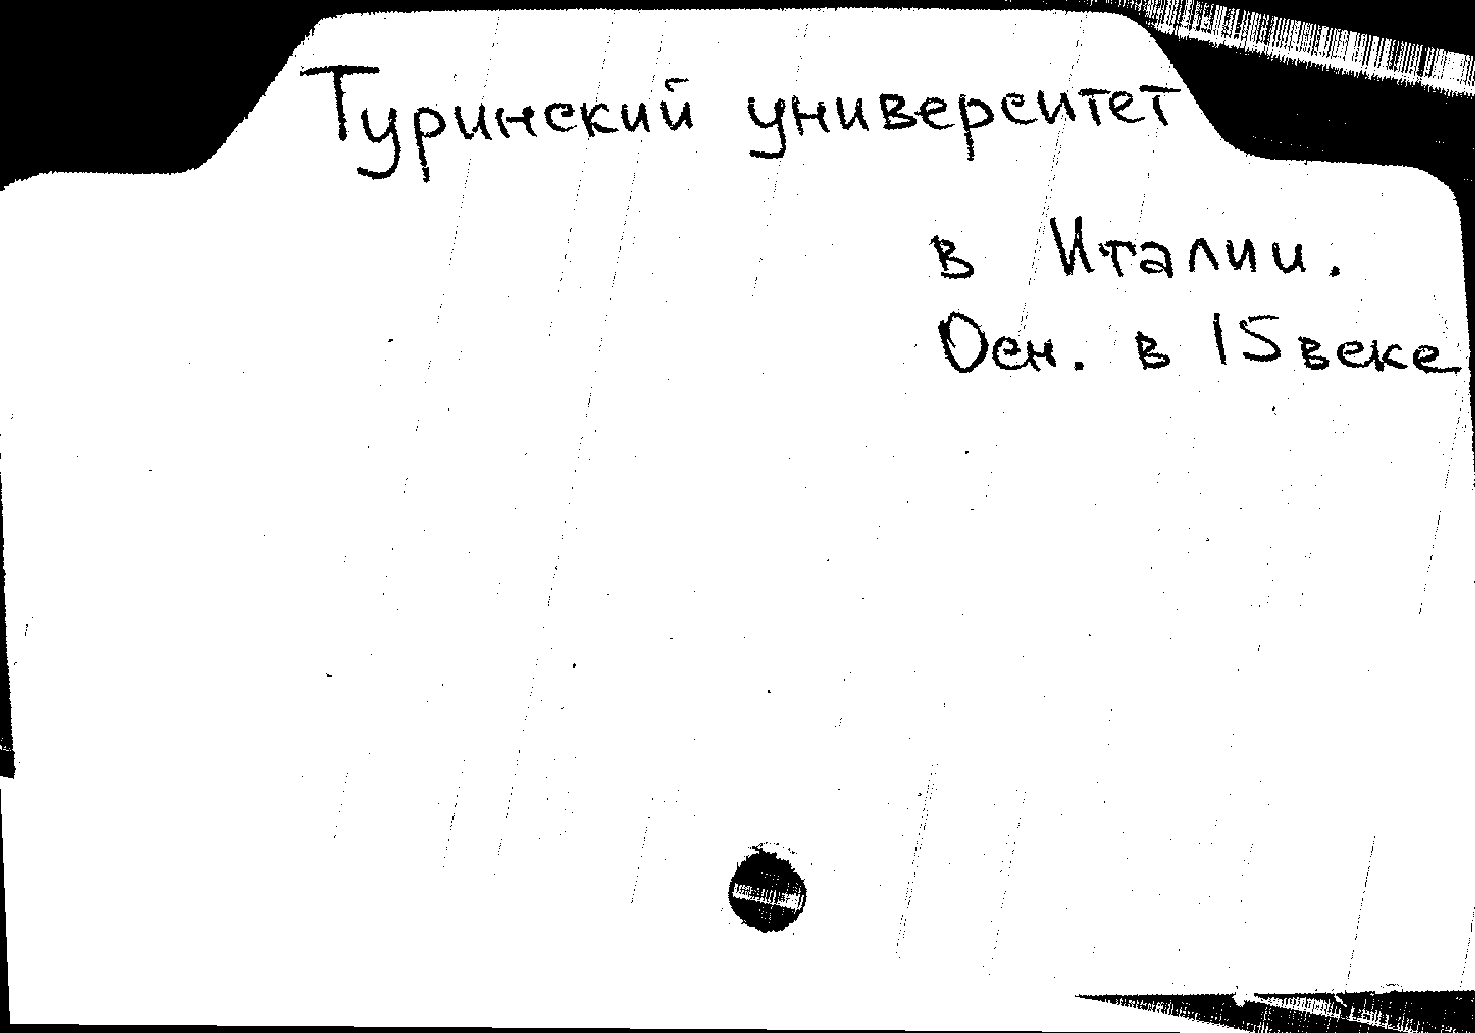 Туринский университет
в Италии.
Осн. в 15 веке